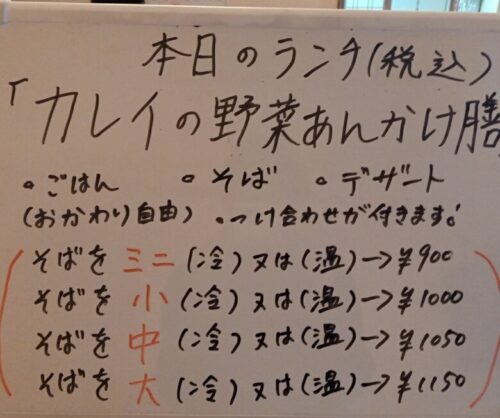 本日のランチ(税込)
「カレイの野菜あんかけ膳
・ごはん ・そば ・デザート
(おかわり自由) ・つけ合わせが付きます!
そばをミニ(冷)又は(温)→¥900
そばを小(冷)又は(温)→¥1000
そばを中(冷)又は(温)→¥1050
そばを大(冷)又は(温)→¥1150